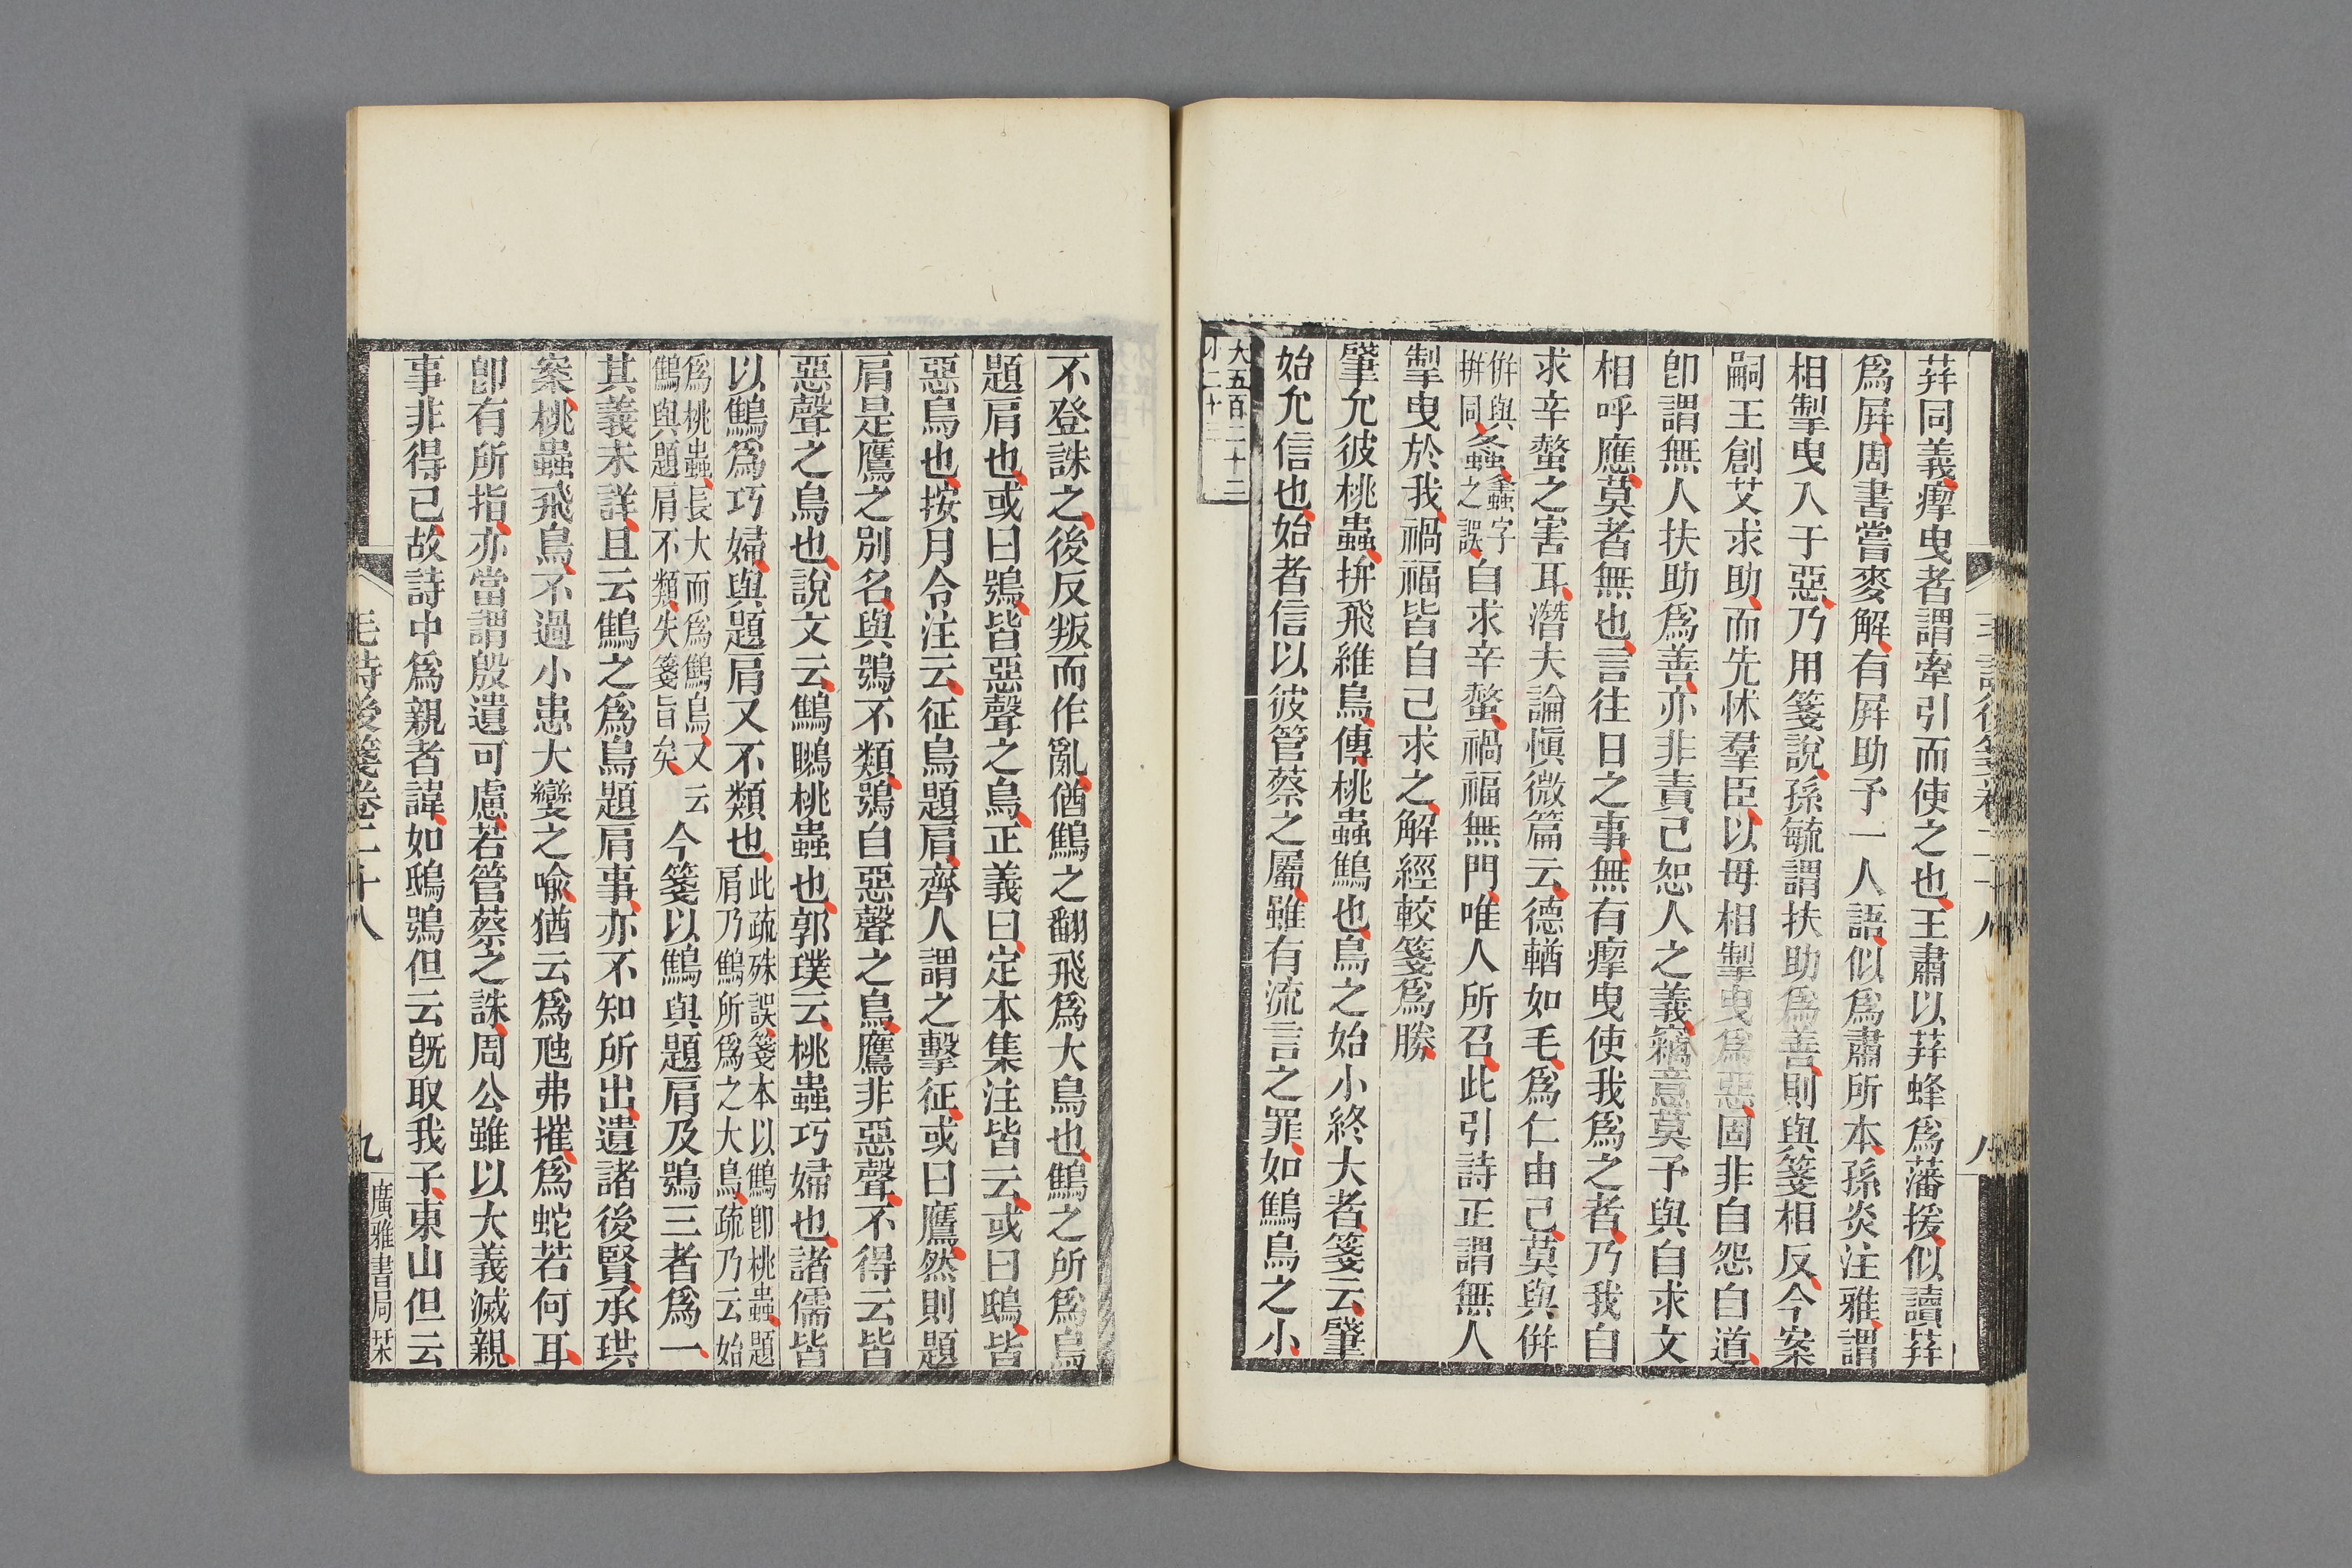 荓同義瘳曳者謂牽引而使之也王肅以荓蜂爲藩援似讀荓
爲屛周書嘗麥解有屛助予一人語似爲肅所本孫炎注雅謂
相掣曳入于惡乃用箋說孫毓謂扶助爲善則與箋相反今案
嗣王創艾求助而先怵羣臣以毋相掣曳爲惡固非自怨自道
卽謂無人扶助爲善亦非責己恕人之義竊意莫予與自求文
相呼應莫者無也言往日之事無有瘳曳使我爲之者乃我自
求辛螫之害耳潛夫論愼微篇云德輶如毛爲仁由己莫與併
併與螽蠭字
拼同夆蟲之誤
自求辛螫禍福無門唯人所召此引詩正謂無人
掣曳於我禍福皆自己求之解經較箋爲勝
肇允彼桃蟲拚飛維鳥傳桃蟲鷦也鳥之始小終大者箋云肇
始允信也始者信以彼管蔡之屬雖有流言之罪如鷦鳥之小
大五百二十二
小二十三
毛詩後箋卷二十八
八
不登誅之後反叛而作亂猶鷦之翻飛爲大鳥也鷦之所爲鳥
題肩也或曰鴞皆惡聲之鳥正義曰定本集注皆云或曰鴟皆
惡鳥也按月令注云征鳥題肩齊人謂之擊征或曰鷹然則題
肩是鷹之別名與鴞不類鴞自惡聲之鳥鷹非惡聲不得云皆
惡聲之鳥也說文云鷦䳟桃蟲也郭璞云桃蟲巧婦也諸儒皆
以鷦爲巧婦與題肩又不類也
此疏殊誤箋本以鷦卽桃蟲題
肩乃鷦所爲之大鳥疏乃云始
爲桃蟲長大而爲鷦鳥又云
鷦與題肩不類失箋旨矣
今箋以鷦與題肩及鴞三者爲一
其義未詳且云鷦之爲鳥題肩事亦不知所出遺諸後賢承珙
案桃蟲飛鳥不過小患大變之喻猶云爲虺弗摧爲蛇若何耳
卽有所指亦當謂殷遺可慮若管蔡之誅周公雖以大義滅親
事非得已故詩中爲親者諱如鴟鴞但云旣取我子東山但云
毛詩後箋卷二十八
九
廣雅書局栞